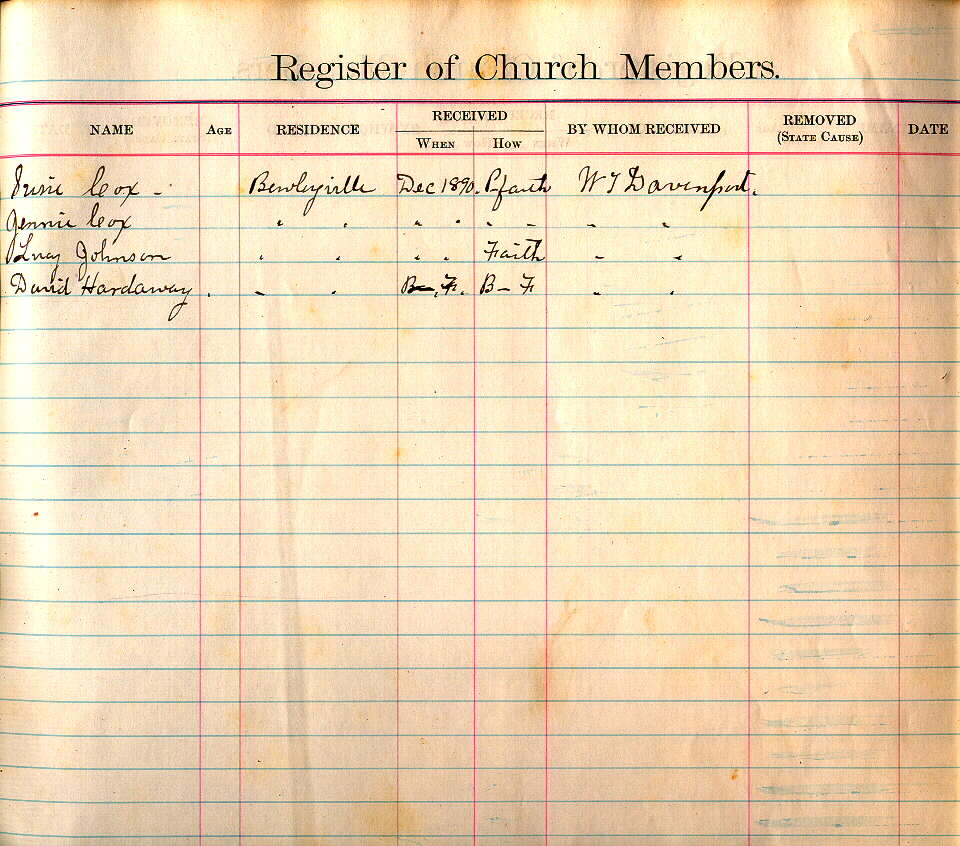 Register of Church Members.
NAME AGE RESIDENCE RECEIVED WHEN HOW BY WHOM RECEIVED REMOVED (STATE CAUSE) DATE
Cox - Bewleyville Dec 1890. P faith W T Davenport.
Jennie Cox " " " " " " " "
Lucy Johnson " " " " Faith " "
David Hardaway . " " B-, F. B - F " "